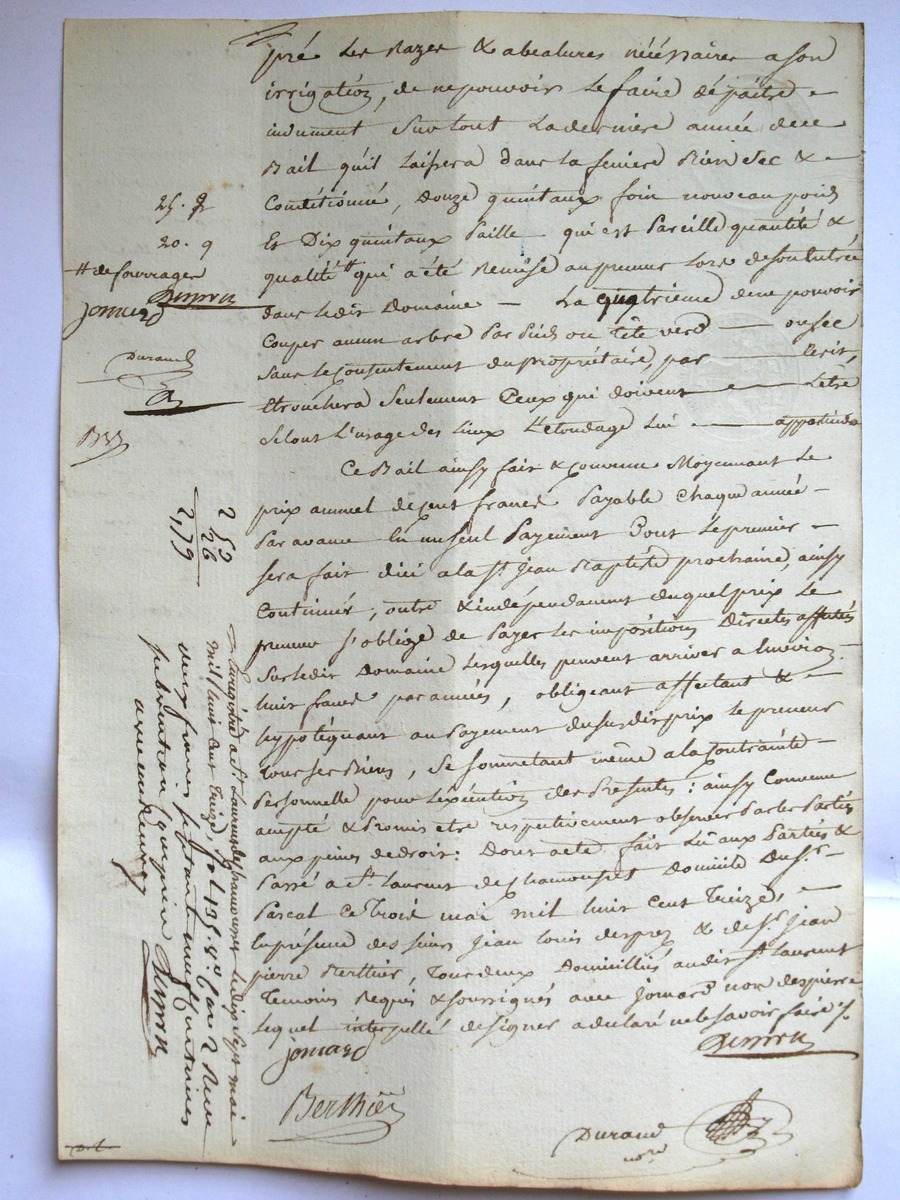 pré les Razes & abealures nécéssaires a son
irrigation, de ne pouvoir le faire dépaitre
indument surtout la derniere année de ce
Bail qu'il laissera dans la feniere Bien sec &
Conditionné, Douze quintaux foin nouveau poids
Et Dix quintaux Paille qui est Pareille quantité &
qualité # qui a été Remise au preneur lors de son Entrée
dans ledit Domaine — La quatrieme de ne pouvoir
Couper aucun arbre Par Pied ou tête verd — ou sec
sans le Consentement du Propriétaire, par — Ecrit,
seulement Ceux qui doivent — L'être
selont l'usage des lieux lui — appartiendra
Ce Bail ainsy fait & Convenu Moyennant le
prix annuel de Cent francs Payable Chaque année
Par avance En un seul Payement Dont le premier
sera fait d'ici a la St. Jean Baptiste prochaine, ainsy
Continuer, outre & indépendament duquel prix le
preneur s'oblige de Payer les impositions Directes affectées
sur ledit Domaine lesquelles peuvent arriver a Environ
huit francs par années, obligeant affectant &
hypotéquant au Payement du susdit prix le preneur
tous ses Biens, se soumetant même a la Contrainte
Personnelle pour l'exécution des Présentes : ainsy Convenu
accepté & Promis etre respectivement observer Par les Parties
aux peines de droit : Dont acte fait Lû aux Parties &
Passé a St. Laurent de Chamousset Domicile Du Sr.
Pascal Ce Trois mai mil huit Cent Treize,
En présence des sieurs Jean Louis Desprez & de Sr. Jean
pierre Berthier, Tous deux Domiciliés audit St. Laurent
Temoins Requis & soussignés avec Jomard non despierre
lequel interpellé de signer a declaré ne le savoir faire
Jomard
Berthier
Durand
nore
25.
20. 9
# de fourrages
Jomard
Durand
2 50
26
2,79
Enregistré a St. Laurent de chamousset le dix sept mai
mil huit Cent Treize, fol 135. Vo. Case 2 Reçu
deux francs soixante neuf Centimes
subvention Comprise